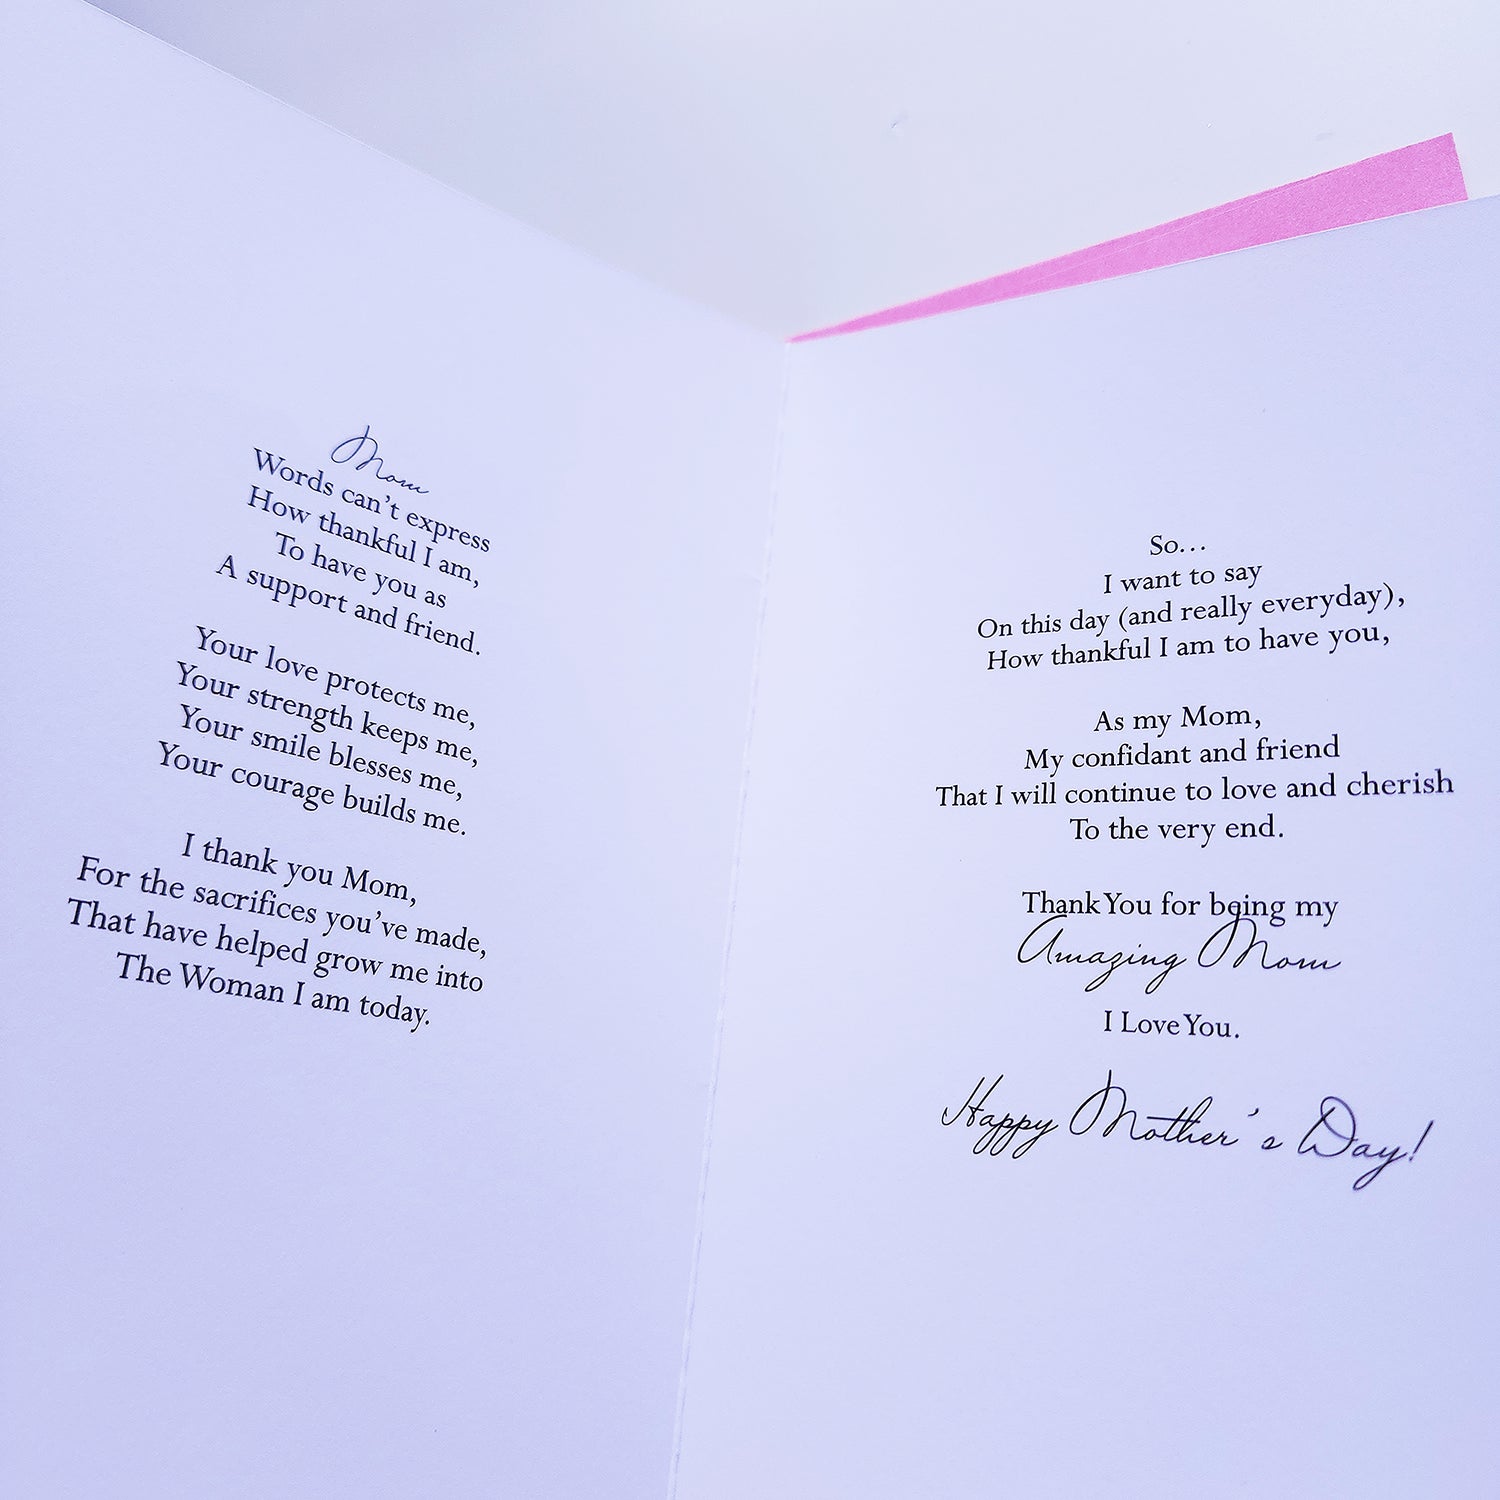 Mom
Words can't express
How thankful I am,
To have you as
A support and friend.
Your love protects me,
Your strength keeps me,
Your smile blesses me,
Your courage builds me.
I thank you Mom,
For the sacrifices you've made,
That have helped grow me into
The Woman I am today.
So...
I want to say
On this day (and really everyday),
How thankful I am to have you,
As my Mom,
My confidant and friend
That I will continue to love and cherish
To the very end.
Thank You for being my
Amazing Mom
I Love You.
Happy Mother's Day!